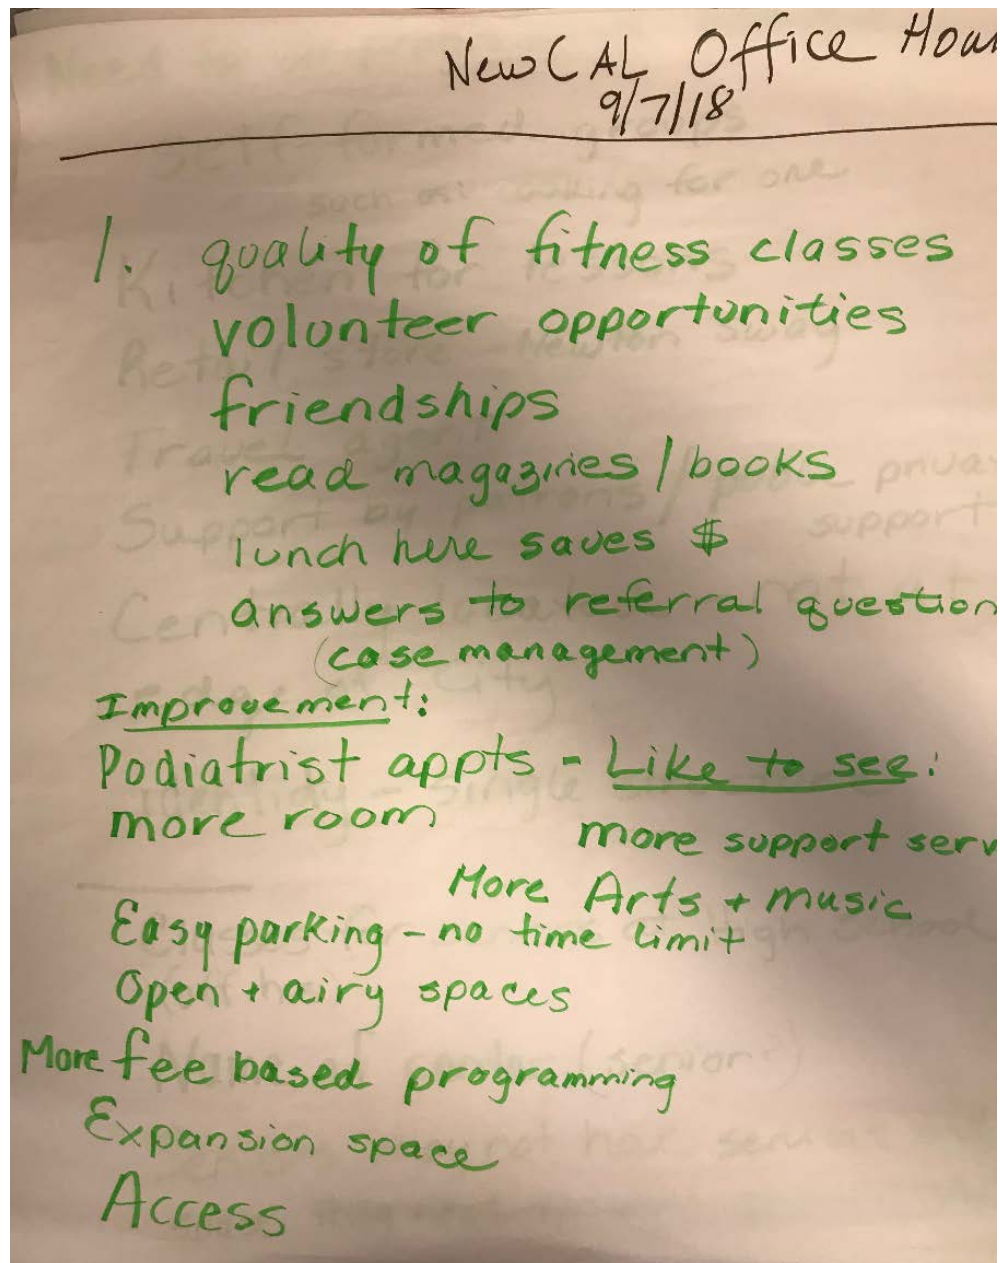 NewCAL Office Hou
9/7/18
1. quality of fitness classes
volunteer opportunities
friendships
read magazines / books
lunch here saves $
answers to referral question
(case management)
Improvement:
Podiatrist appts - Like to see:
more room
more support serv
More Arts + music
Easy parking - no time limit
Open + airy spaces
More fee based programming
Expansion space
Access